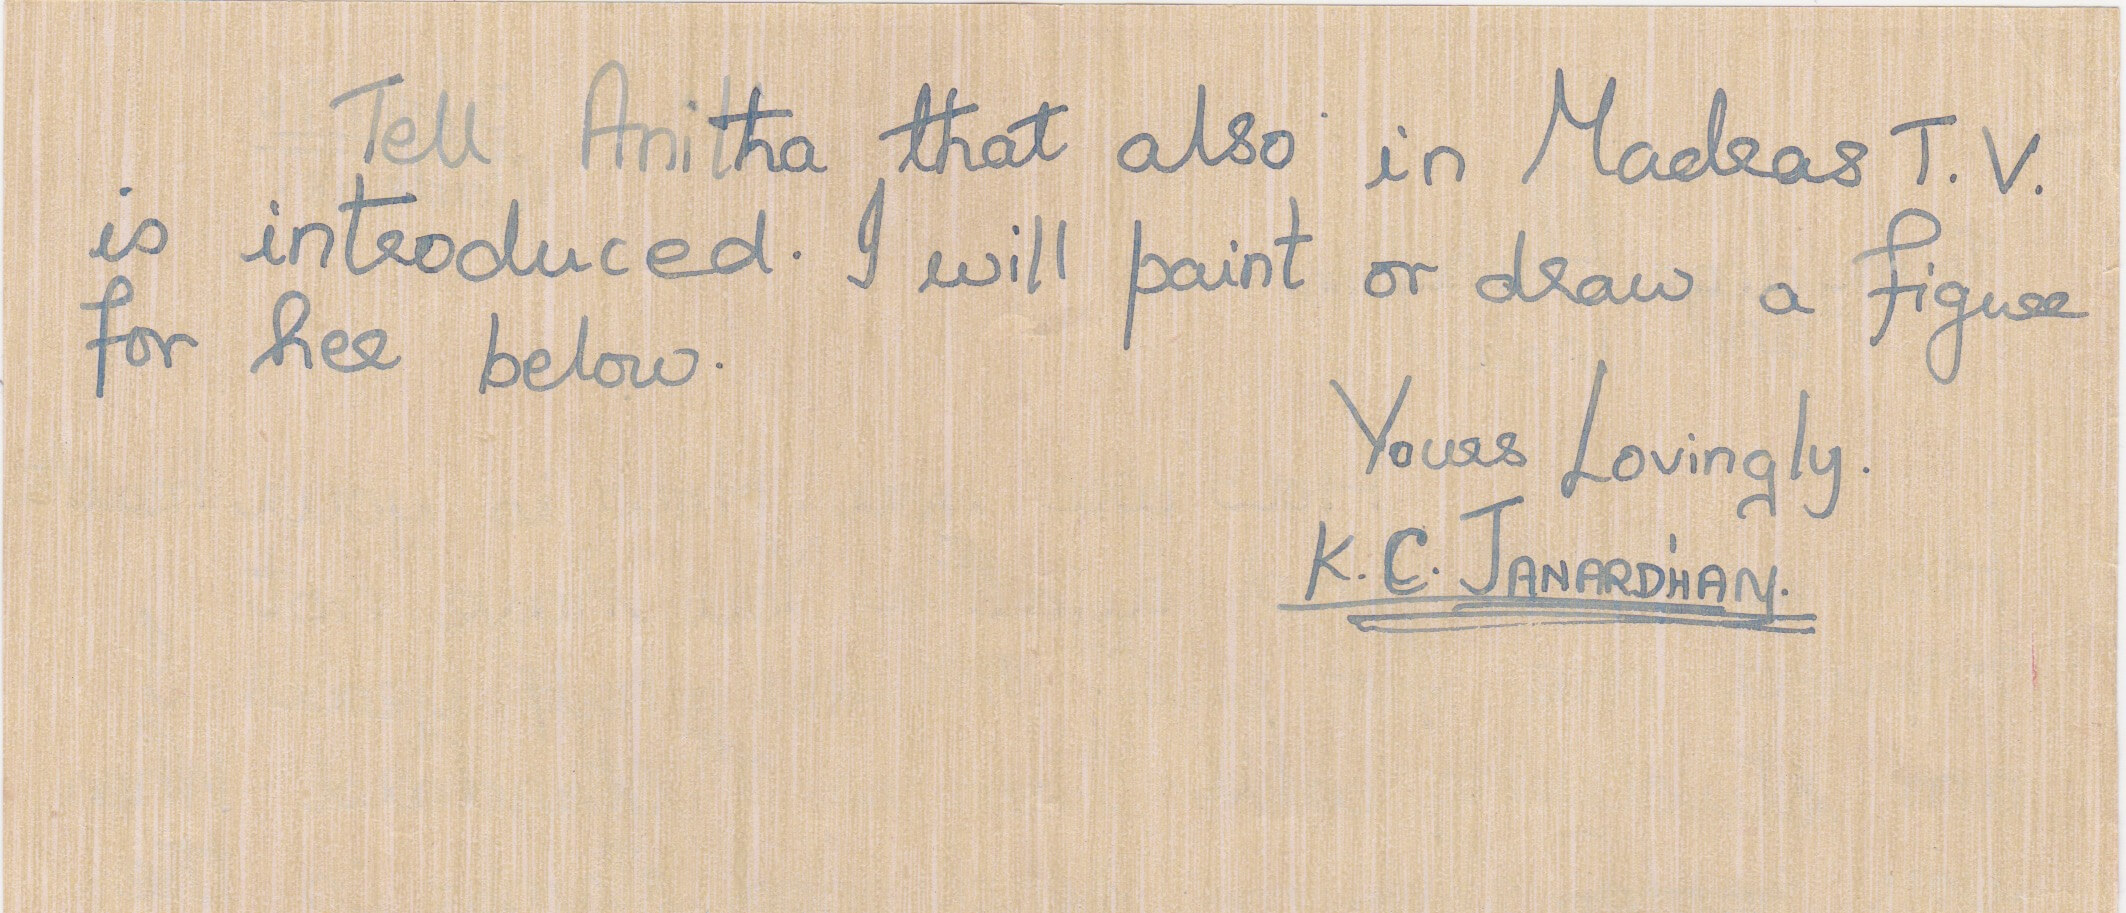 Tell Anitha that also in Madras T.V.
is introduced. I will paint or draw a figure
for her below.
Yours Lovingly.
K.C. JANARDHAN.